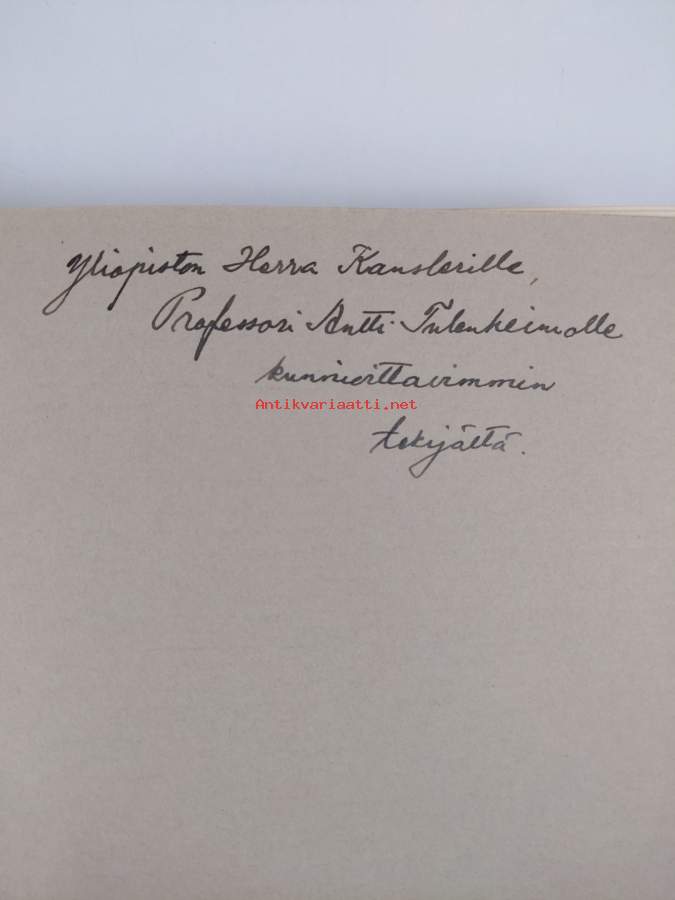 Yliopiston Herra Kanslerille,
Professori Antti Tulenheimolle
kunnioittavimmin
Antikvariaatti.net
tekijältä.